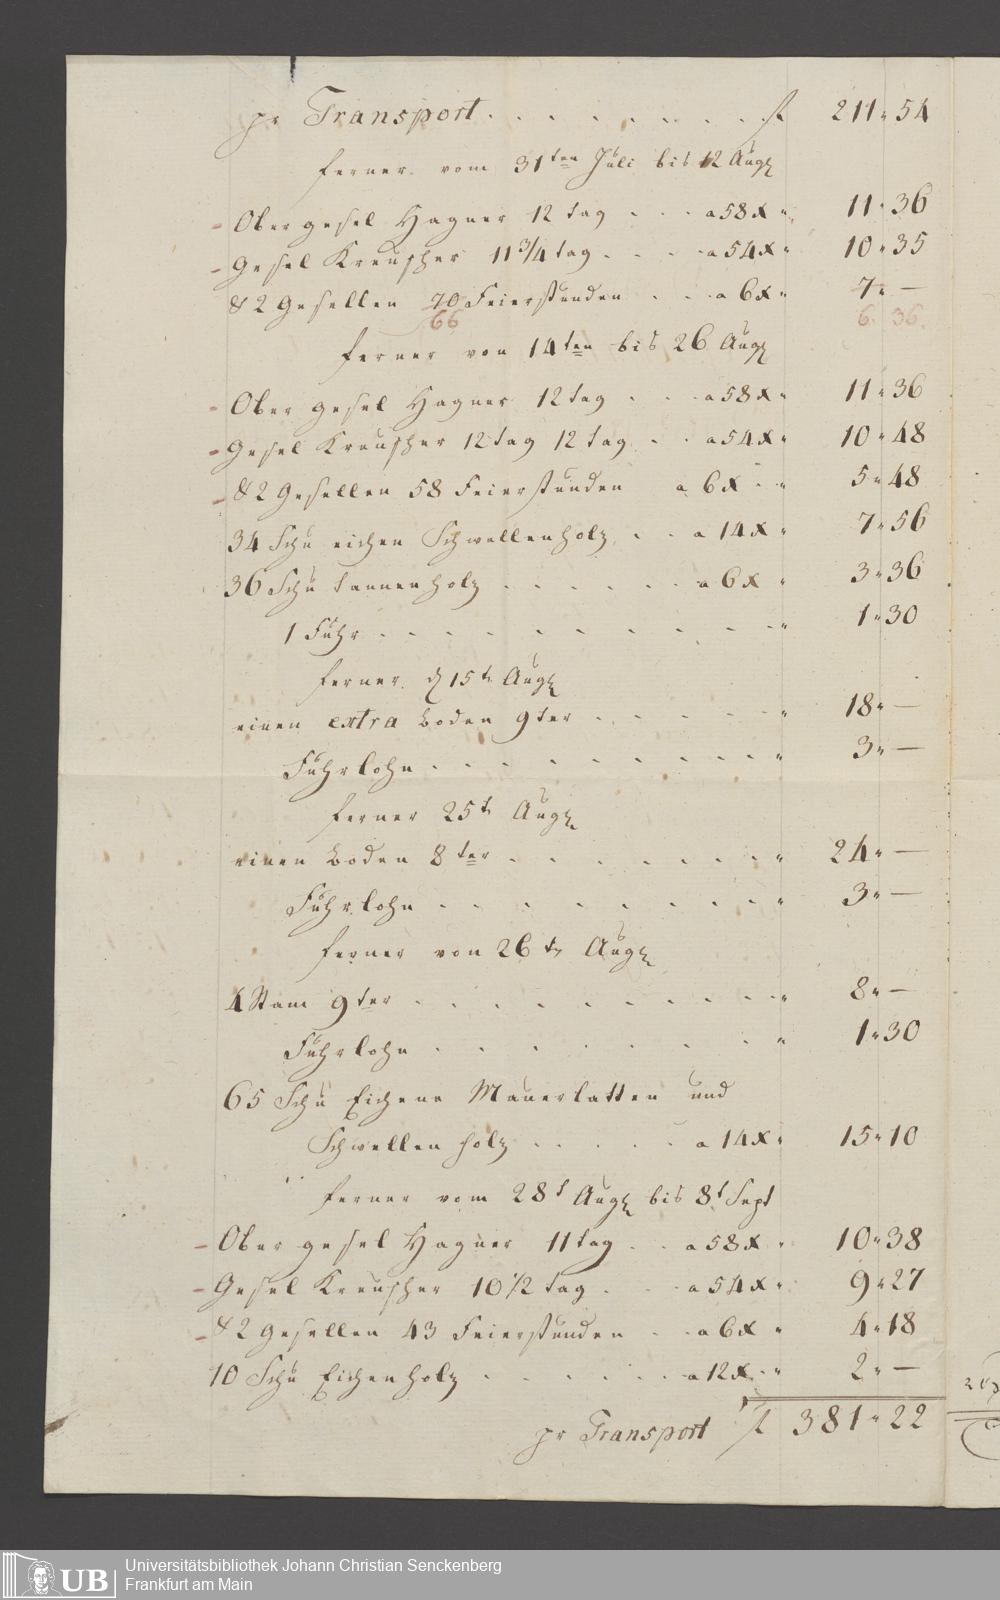 pr Transport . . . . . . . . . fl 211 " 54
ferner vom 31ten Juli bis 12 Augl
Ober gesel Hagner 12 tag . . . a 58 x " 11 " 36
Gesel Kreuscher 11 3/4 tag . . . . a 54 x " 10 " 35
& 2 Gesellen 70 Feierstunden . . . a 6 x " 7 " —
66 6. 36.
ferner von 14ten bis 26 Augl
Ober gesel Hagner 12 tag . . . a 58 x " 11 " 36
Gesel Kreuscher 12 tag 12 tag . . a 54 x " 10 " 48
& 2 Gesellen 58 Feierstunden a 6 x . " 5 " 48
34 Schu eichen Schwellenholz . . a 14 x " 7 " 56
36 Schu tannenholz . . . . . a 6 x " 3 " 36
1 Fuhr . . . . . . . . . . " 1 " 30
ferner d 15t Augl
einen extra Boden 9ter . . . . . " 18 " —
Fuhrlohn . . . . . . . . . " 3 " —
ferner 25t Augl
einen Boden 8ter . . . . . . . " 24 " —
Fuhrlohn . . . . . . . . . " 3 " —
ferner von 26t Augl
4 Stam 9ter . . . . . . . . . " 8 " —
Fuhrlohn . . . . . . . . " 1 " 30
65 Schu Eichene Mauerlatten und
Schwellen holz . . . . . a 14 x " 15 " 10
ferner vom 28t Augl bis 8t Sept
Ober gesel Hagner 11 tag . . a 58 x " 10 " 38
Gesel Kreuscher 10 1/2 tag . . . a 54 x " 9 " 27
& 2 Gesellen 43 Feierstunden . . a 6 x " 4 " 18
10 Schu Eichenholz . . . . . . a 12 x . " 2 " —
pr Transport fl 381 " 22
UB Universitätsbibliothek Johann Christian Senckenberg
Frankfurt am Main